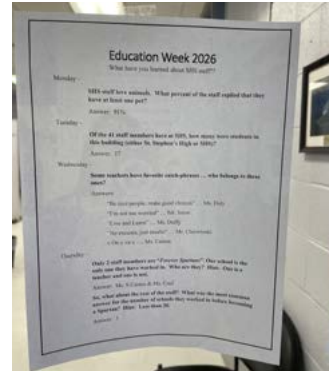 Education Week 2026
What have you learned about SHS staff??
Monday -
SHS staff love animals. What percent of the staff replied that they
have at least one pet?
Answer: 91%
Tuesday -
Of the 41 staff members here at SHS, how many were students in
this building (either St. Stephen's High or SHS)?
Answer: 17
Wednesday -
Some teachers have favorite catch-phrases ... who belongs to these
ones?
Answers:
"Be nice people, make good choices" ... Ms.
"I'm not too worried" ... Mr.
"Live and Learn" ... Ms. Duffy
"No excuses, just results" ... Mr.
... Ms.
Thursday -
Only 2 staff members are "Forever Spartans". Our school is the
only one they have worked in. Who are they? Hint: One is a
teacher and one is not.
Answer: Ms. & Ms.
So, what about the rest of the staff? What was the most common
answer for the number of schools they worked in before becoming
a Spartan? Hint: Less than 20.
Answer: